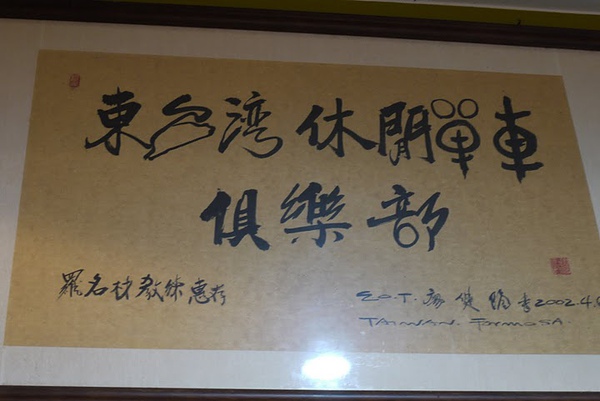 東台湾休閒單車
俱樂部
羅名材教練惠存
E.O.T. 2002.4.
TAIWAN. FORMOSA